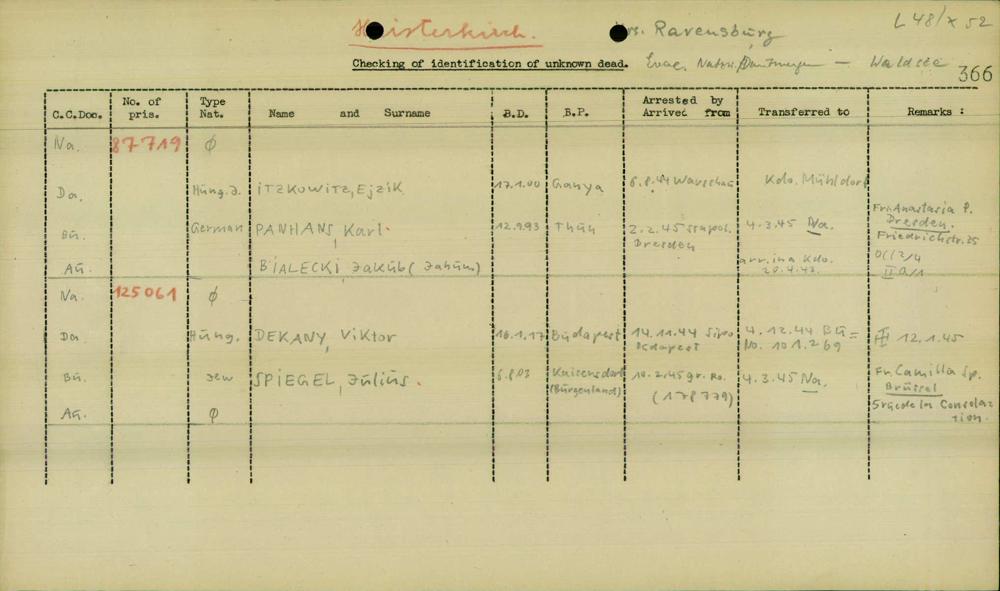 L 48/x 52
Heisterkirch. Krs. Ravensbürg
Checking of identification of unknown dead. Evac. Natzw. – Waldsee
366
C.C.Doc. No. of pris. Type Nat. Name and Surname B.D. B.P. Arrested by Arrived from Transferred to Remarks :
Na. 87719 ø
Da. Hüng.J. ITZKOWITZ, Ejzik 17.1.00 Ganya 6.8.44 Wauschau Kdo. Mühldorf
Bü. German PANHANS, Karl. 12.9.93 Thün 2.2.45 Stapol. Dresden 4.3.45 Na. Fr. Anastasia P. Dresden. Friedrichstr. 25
Aü. BIALECKI, Jaküb (Jahüm) arr. in a Kdo. 20.4.43. II a/1
Na. 125061 ø
Da. Hüng. DEKANY, Viktor 16.1.17 Büdapest 14.11.44 Sipo Büdapest 4.12.44 Bü= No. 101.269 III 12.1.45
Bü. Jew SPIEGEL, Jüliüs. 6.8.03 Kaisersdorf (Bürgenland) 10.2.45 gr. Ro. (178779) 4.3.45 Na. Fr. Camilla Sp. Brüssel
Aü. ø 5 rüe de la Consola= tion.